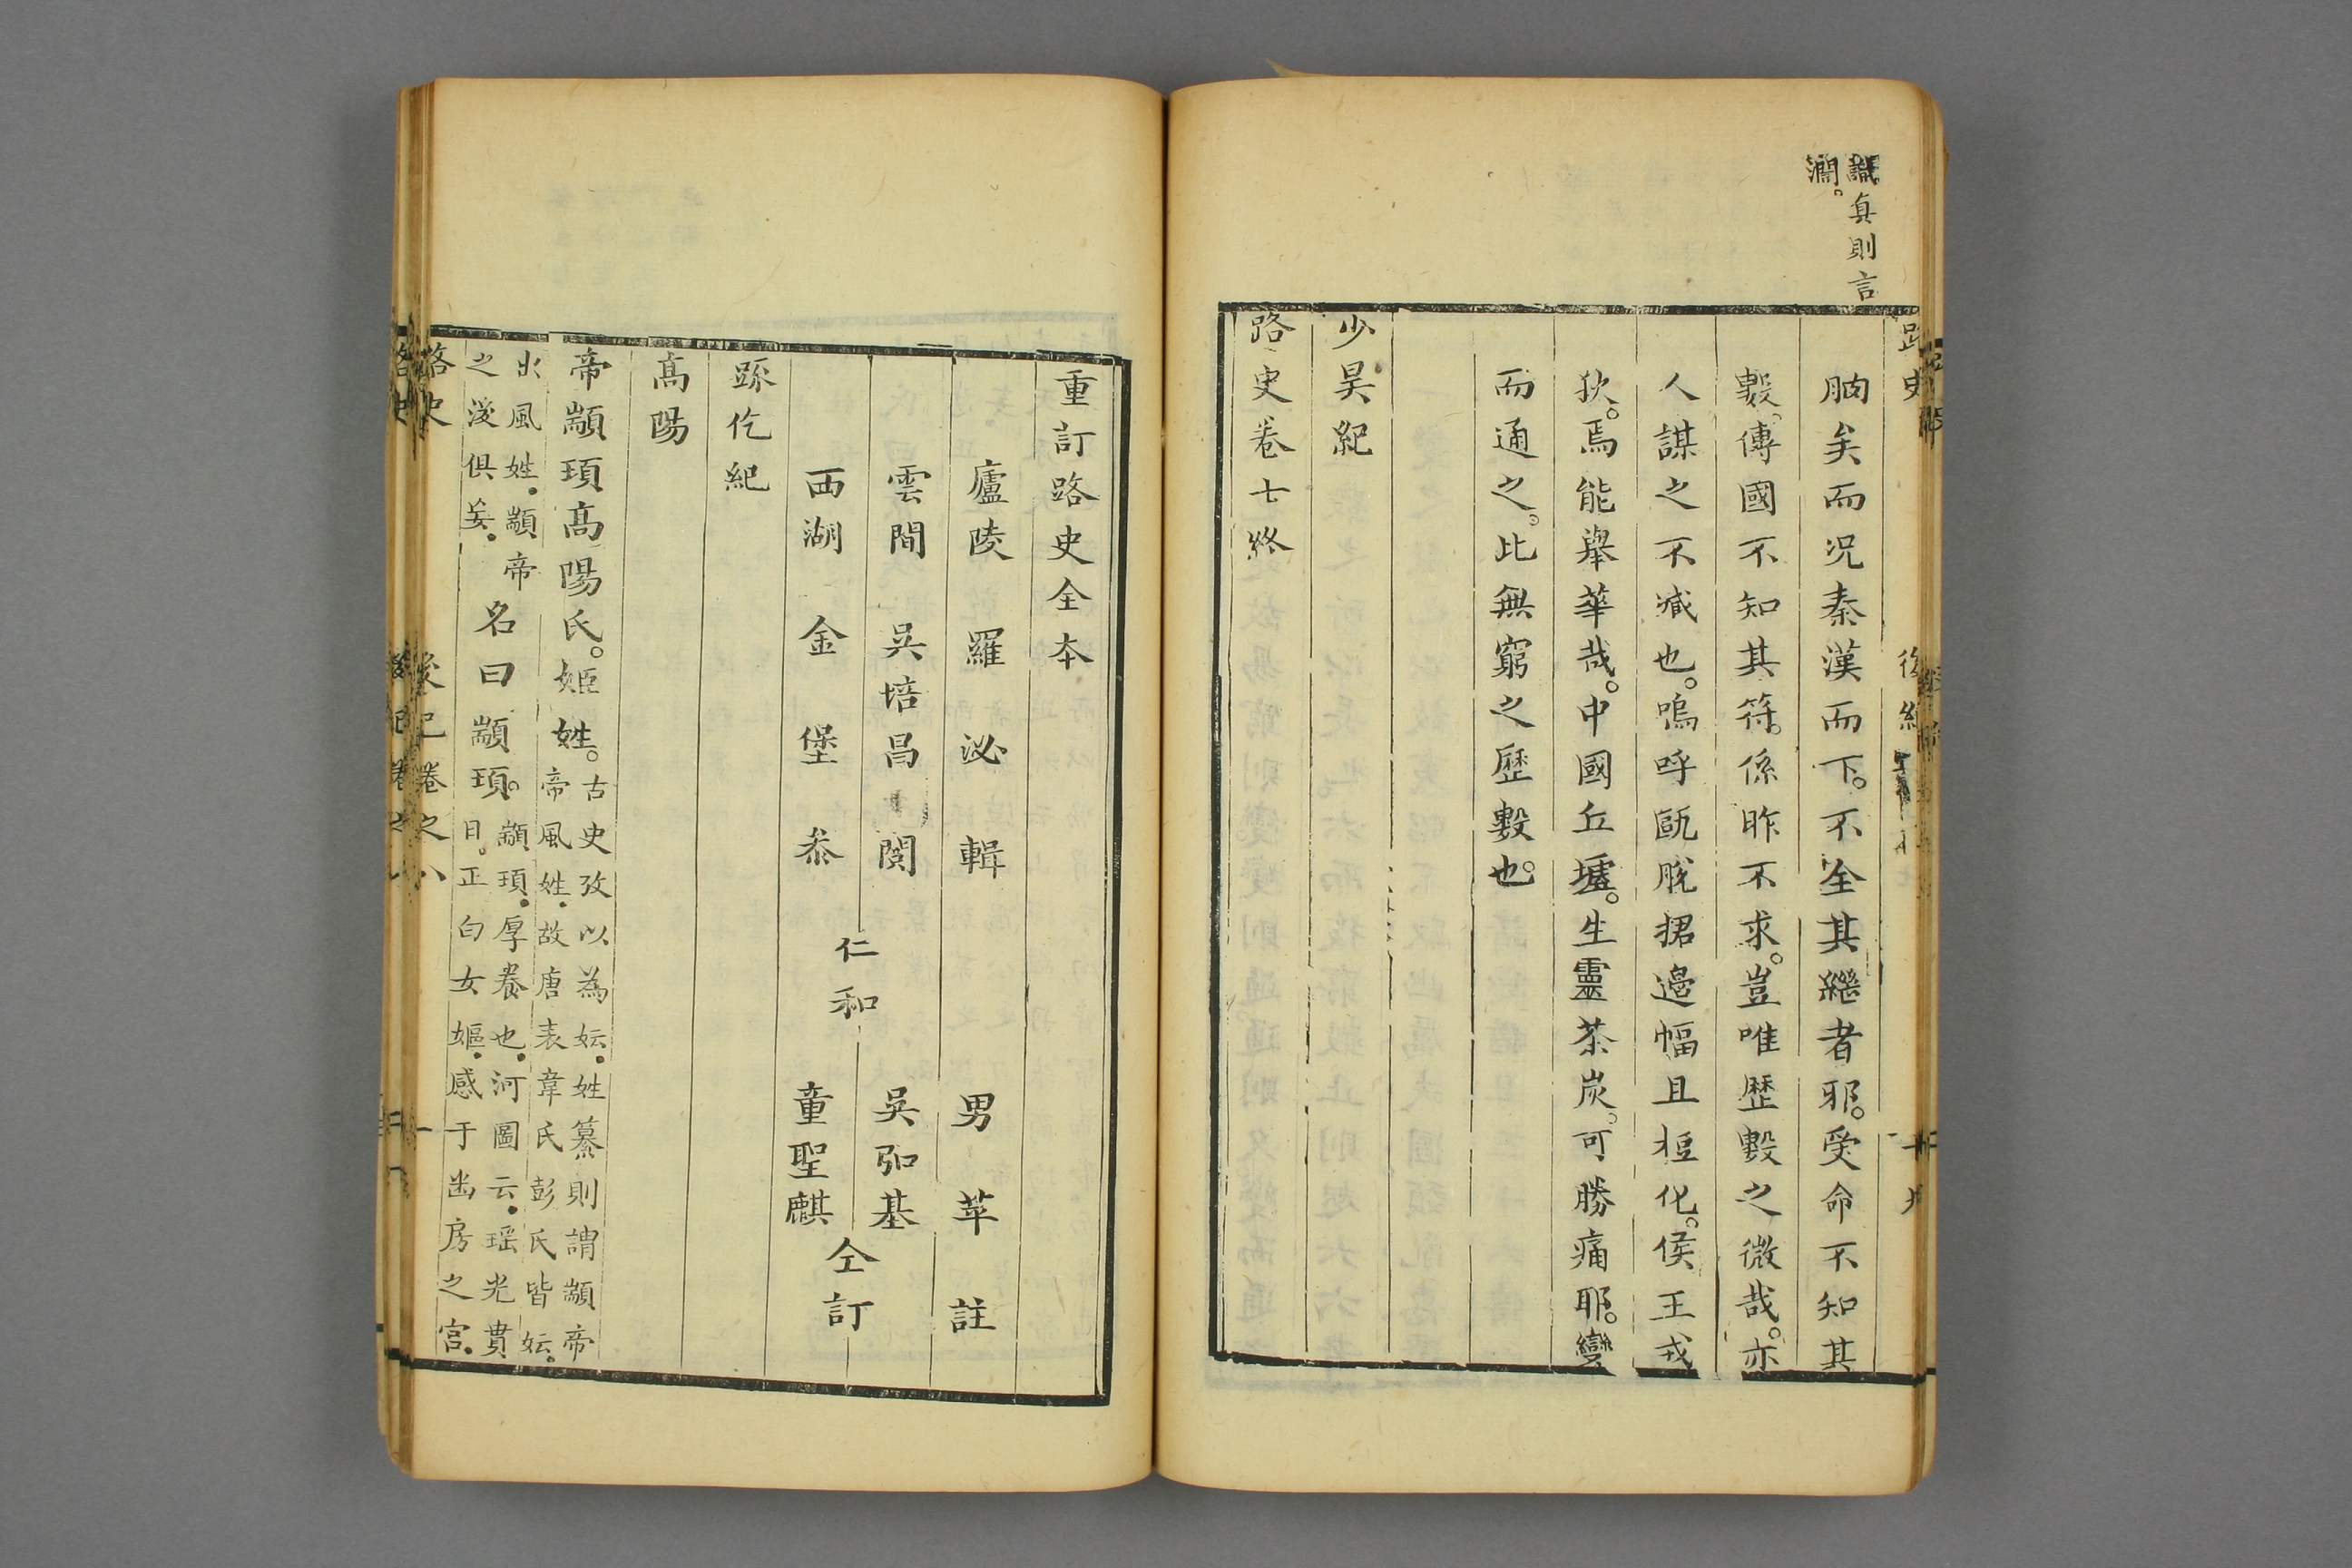 識真則言
瀾。
朒矣而况秦漢而下。不全其繼者耶。受命不知其
數。傳國不知其符。係昨不求。豈唯歷數之微哉。亦
人謀之不臧也。嗚呼甌脫捃邊幅且桓化。侯王戎
狄。焉能舉華哉。中國丘墟。生靈荼炭。可勝痛耶。變
而通之。此無窮之歷數也。
少昊紀
路史卷七終
重訂路史全本
廬陵 羅泌輯 男苹註
雲間 吳培昌閲 仁和 吳弘基
西湖 金堡叅 童聖麒 仝訂
疏仡紀
高陽
帝顓頊高陽氏。姬姓。古史攷以為妘。姓纂則謂顓帝
帝風姓。故唐表韋氏彭氏皆妘。
出風姓。顓帝
之後俱妄。名曰顓頊。顓頊。厚養也。河圖云。瑶光貫
日。正白女嫗。感于幽房之宫。
路史 後紀卷之八 一